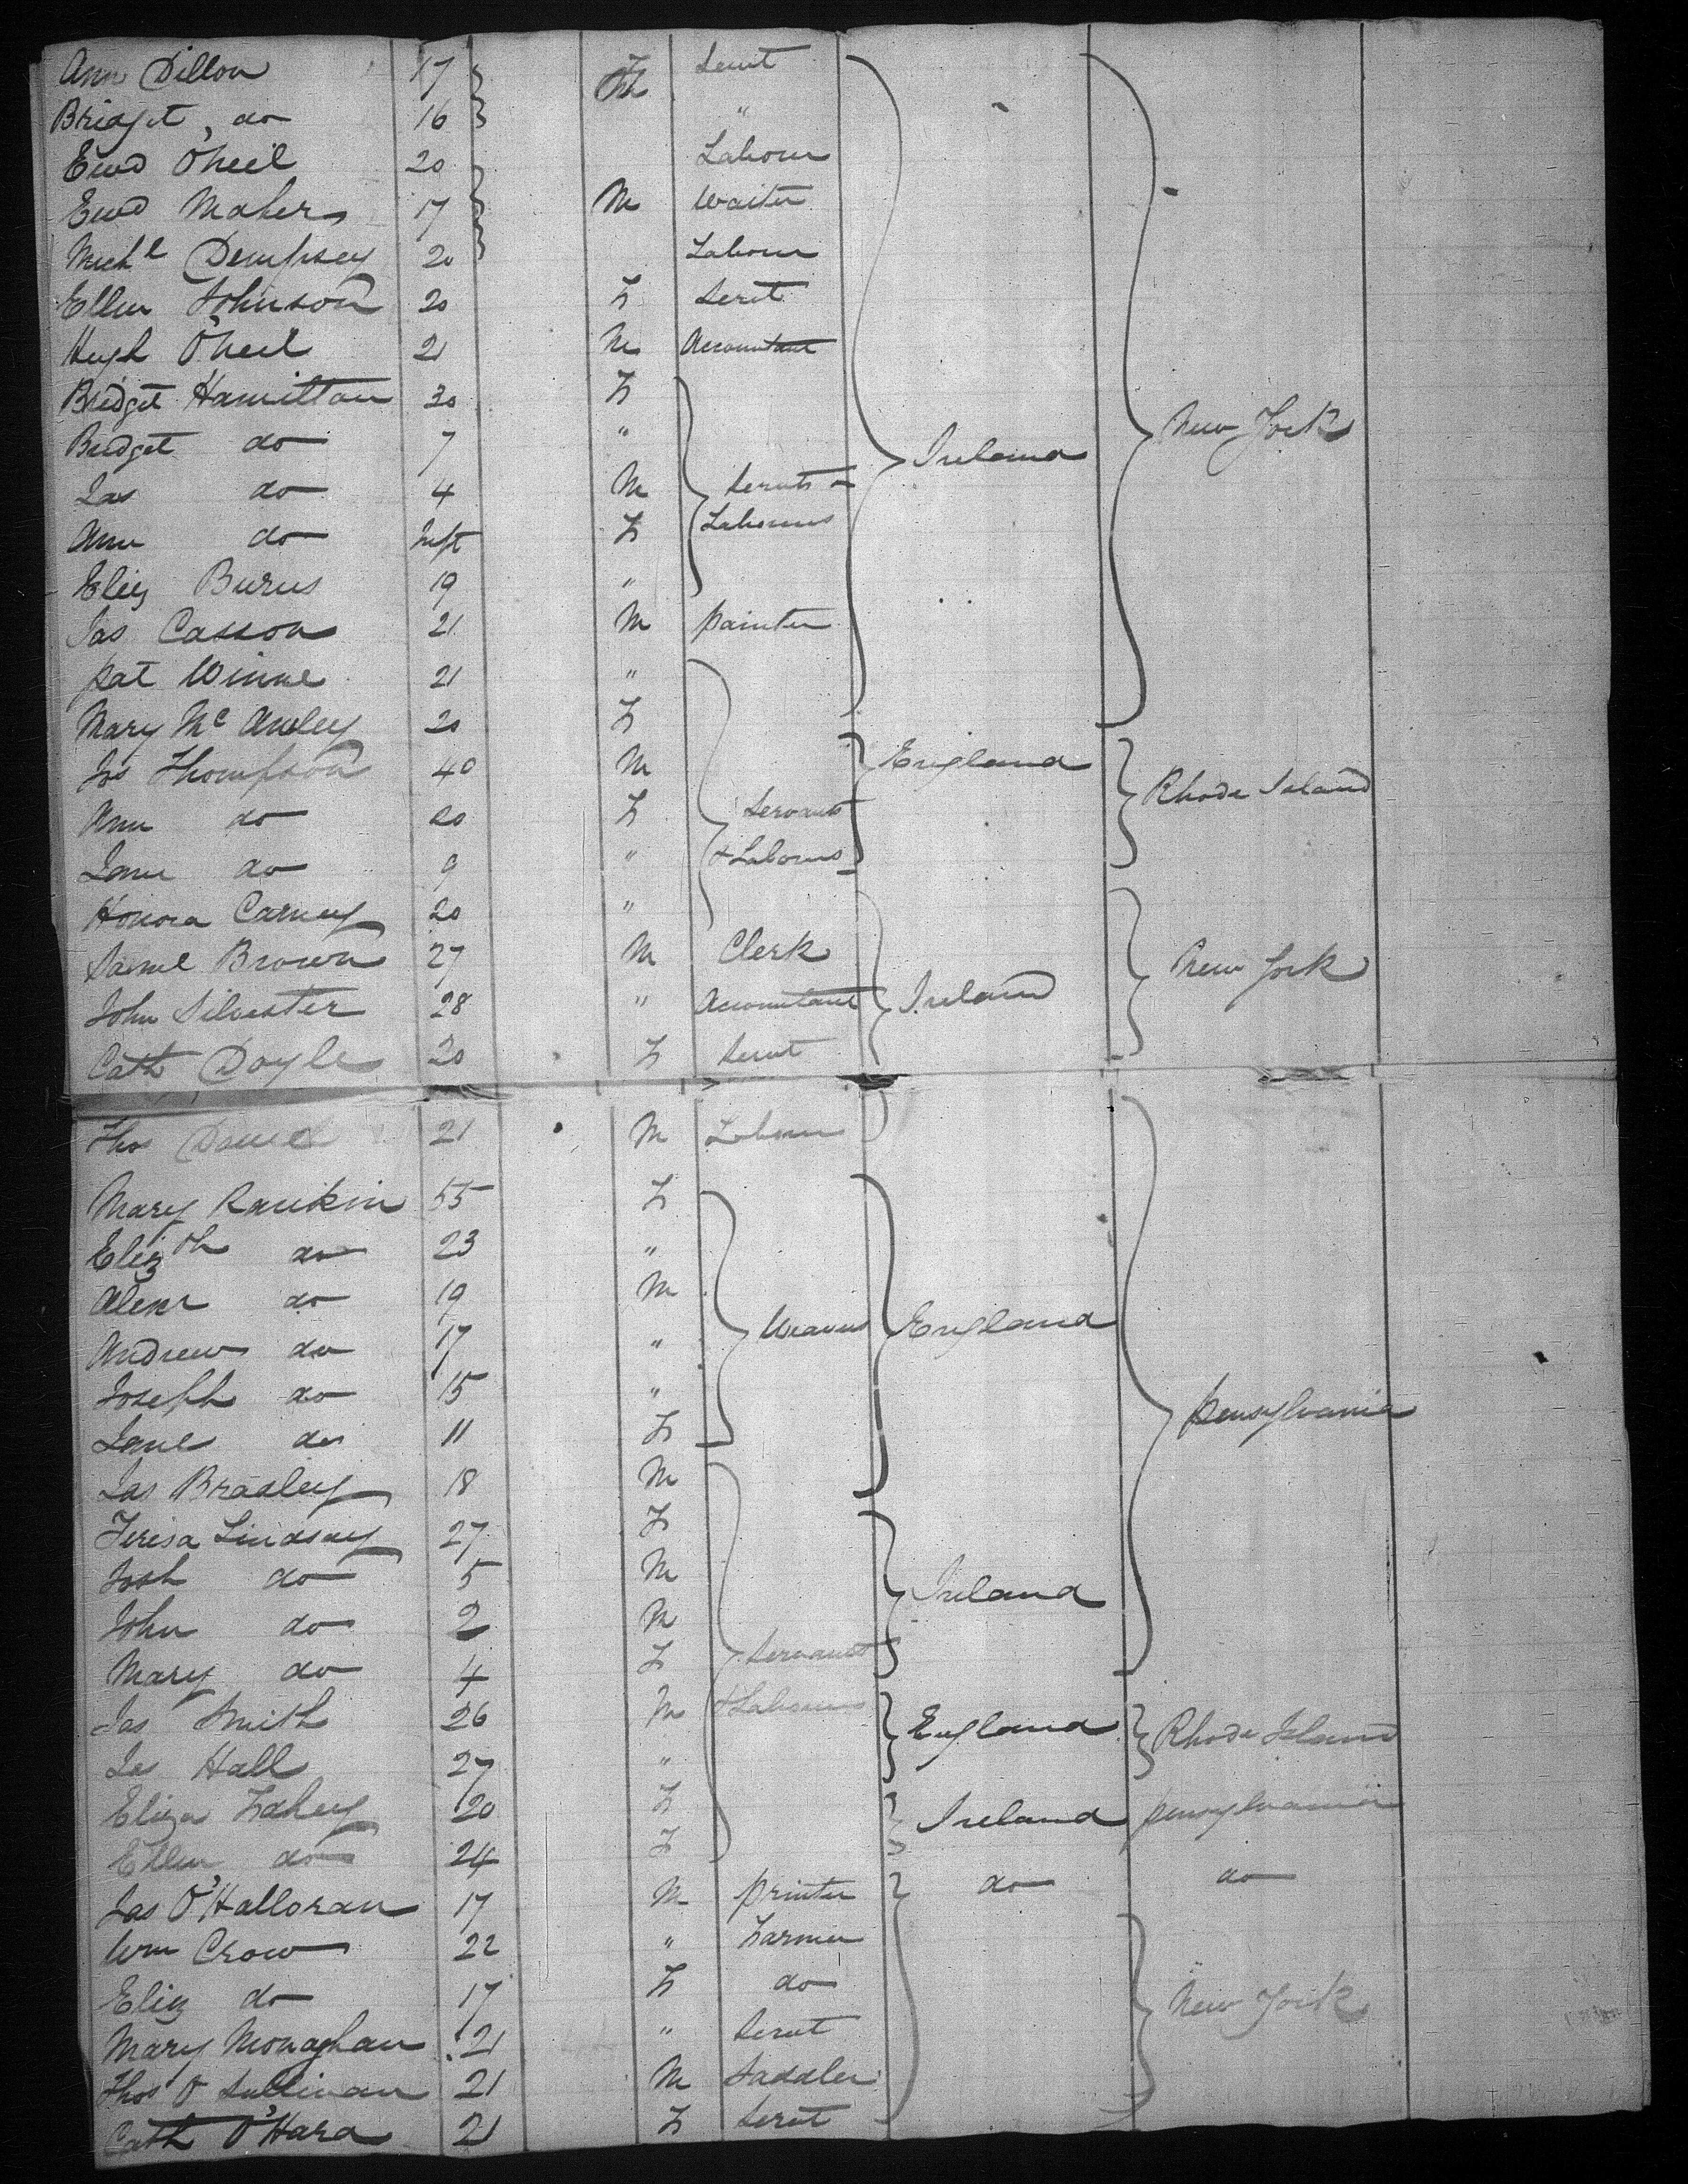 Ann Dillon 17 F Servt
Bridget do 16 "
Ewd O'Neil 20 Labour
Ewd Maher 17 M Waiter
Michl Dempsey 20 Labour
Ellen Johnson 20 F Servt
Hugh O'Neil 21 M Accountant
Bridget Hamilton 30 F
Bridget do 7 " Ireland New York
Jas do 4 M Servts
Ann do Inft F Labourers
Eliz Burns 19 "
Jas Casson 21 M painter
pat Winne 21 "
Mary Mc Auley 20 F
Jos Thompson 40 M England Rhode Island
Ann do 20 F Servants
Jane do 9 " & Labours
Honora Carney 20 "
Saml Brown 27 M Clerk New York
John Silvester 28 " Accountant Ireland
Cath Doyle 20 F Servt
Thos 21 M Labour
Mary Rankin 55 F
Elizth do 23 "
Alexr do 19 M
Andrew do 17 " Weavers England
Joseph do 15 "
Jane do 11 F pensylvania
Jas Bradley 18 M
Teresa Lindsay 27 F
Josh do 5 M Ireland
John do 2 M
Mary do 4 F Servants
Jas Smith 26 M & Labours England Rhode Island
Jas Hall 27 "
Eliza Fahey 20 F Ireland pensylvania
Ellen do 24 F
Jas O'Halloran 17 M printer do do
Wm Crow 22 " Farmer
Eliz do 17 F do New York
Mary Monaghan 21 " Servt
Thos O Sullivan 21 M Saddler
Cath O'Hara 21 F Servt